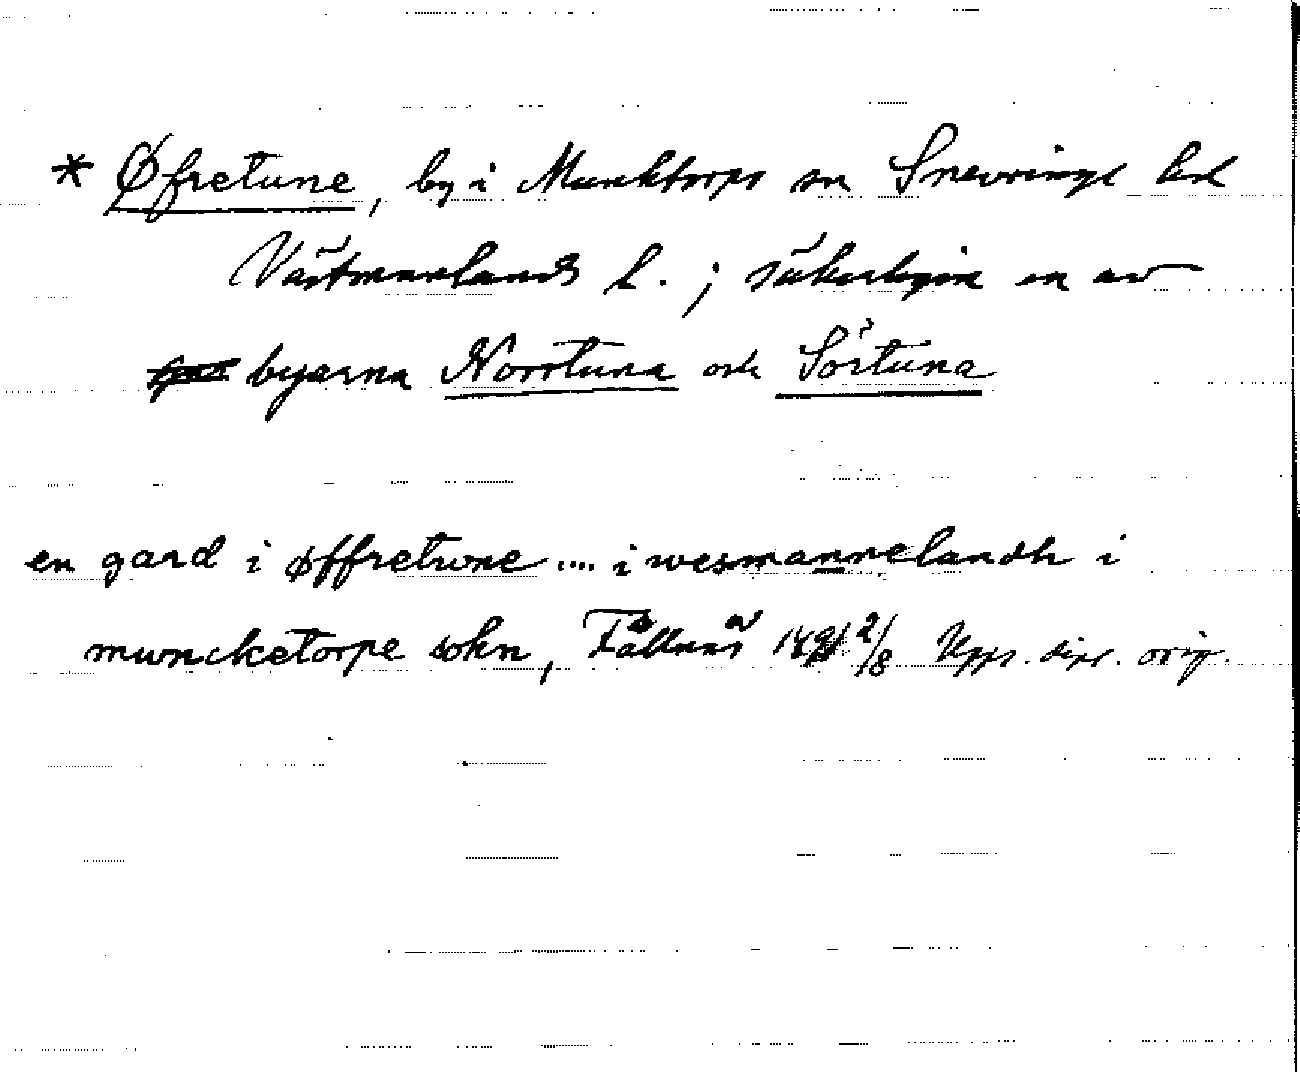 * Øfretune, by i Munktorps sn Snevringe hd
Västmanlands l. ; säkerligen en av
byarna Norrtuna och Sörtuna
en gard i øffretwne .... i wesmannelandh i
mwncketorpe sokn, 2/8 Upps. dipl. orig.